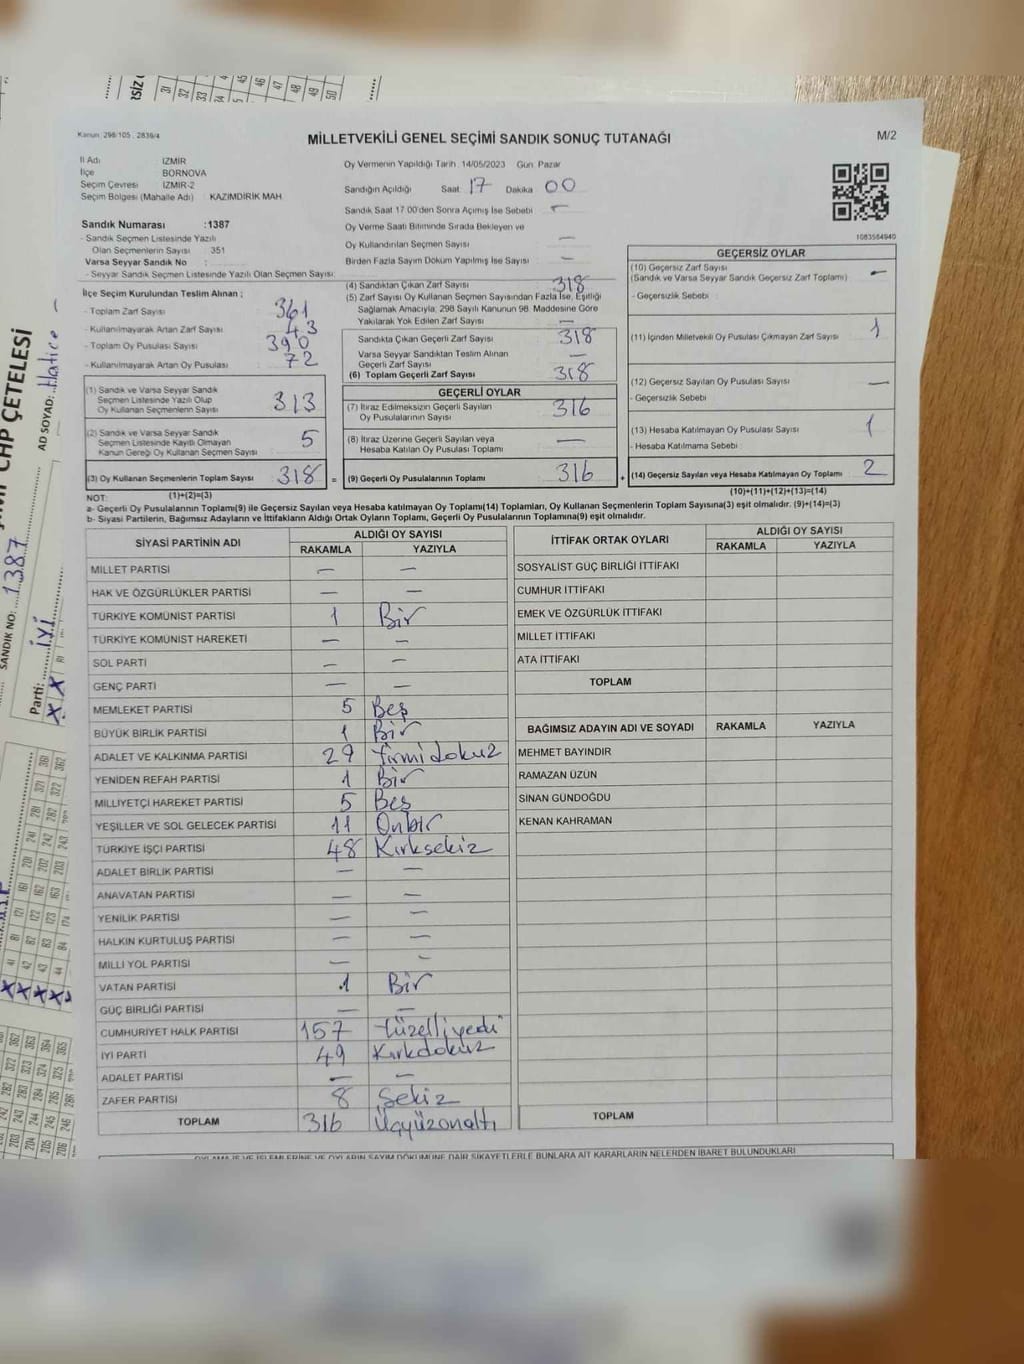 MİLLETVEKİLİ GENEL SEÇİMİ SANDIK SONUÇ TUTANAĞI
M/2
Kanun: 298/105, 2839/4
İl Adı İZMİR
İlçe BORNOVA
Seçim Çevresi İZMİR-2
Seçim Bölgesi (Mahalle Adı) : KAZIMDİRİK MAH.
Sandık Numarası :1387
- Sandık Seçmen Listesinde Yazılı
Olan Seçmenlerin Sayısı : 351
Varsa Seyyar Sandık No :
- Seyyar Sandık Seçmen Listesinde Yazılı Olan Seçmen Sayısı:
Oy Vermenin Yapıldığı Tarih : 14/05/2023 Gün: Pazar
Sandığın Açıldığı Saat: 17 Dakika 00
Sandık Saat 17.00'den Sonra Açılmış İse Sebebi : —
Oy Verme Saati Bitiminde Sırada Bekleyen ve
Oy Kullandırılan Seçmen Sayısı : —
Birden Fazla Sayım Döküm Yapılmış İse Sayısı : —
1083584940
İlçe Seçim Kurulundan Teslim Alınan ;
- Toplam Zarf Sayısı : 361
- Kullanılmayarak Artan Zarf Sayısı : 43
- Toplam Oy Pusulası Sayısı : 390
- Kullanılmayarak Artan Oy Pusulası : 72
(1) Sandık ve Varsa Seyyar Sandık
Seçmen Listesinde Yazılı Olup
Oy Kullanan Seçmenlerin Sayısı : 313
(2) Sandık ve Varsa Seyyar Sandık
Seçmen Listesinde Kayıtlı Olmayan
Kanun Gereği Oy Kullanan Seçmen Sayısı : 5
(3) Oy Kullanan Seçmenlerin Toplam Sayısı : 318
(1)+(2)=(3)
(4) Sandıktan Çıkan Zarf Sayısı : 318
(5) Zarf Sayısı Oy Kullanan Seçmen Sayısından Fazla İse, Eşitliği
Sağlamak Amacıyla, 298 Sayılı Kanunun 98. Maddesine Göre
Yakılarak Yok Edilen Zarf Sayısı : —
Sandıkta Çıkan Geçerli Zarf Sayısı : 318
Varsa Seyyar Sandıktan Teslim Alınan
Geçerli Zarf Sayısı : —
(6) Toplam Geçerli Zarf Sayısı : 318
GEÇERLİ OYLAR
(7) İtiraz Edilmeksizin Geçerli Sayılan
Oy Pusulalarının Sayısı : 316
(8) İtiraz Üzerine Geçerli Sayılan veya
Hesaba Katılan Oy Pusulası Toplamı : —
= (9) Geçerli Oy Pusulalarının Toplamı : 316 +
GEÇERSİZ OYLAR
(10) Geçersiz Zarf Sayısı : —
(Sandık ve Varsa Seyyar Sandık Geçersiz Zarf Toplamı)
- Geçersizlik Sebebi :
(11) İçinden Milletvekili Oy Pusulası Çıkmayan Zarf Sayısı : 1
(12) Geçersiz Sayılan Oy Pusulası Sayısı : —
- Geçersizlik Sebebi :
(13) Hesaba Katılmayan Oy Pusulası Sayısı : 1
- Hesaba Katılmama Sebebi :
(14) Geçersiz Sayılan veya Hesaba Katılmayan Oy Toplamı : 2
(10)+(11)+(12)+(13)=(14)
NOT:
a- Geçerli Oy Pusulalarının Toplamı(9) ile Geçersiz Sayılan veya Hesaba katılmayan Oy Toplamı(14) Toplamları, Oy Kullanan Seçmenlerin Toplam Sayısına(3) eşit olmalıdır. (9)+(14)=(3)
b- Siyasi Partilerin, Bağımsız Adayların ve İttifakların Aldığı Ortak Oyların Toplamı, Geçerli Oy Pusulalarının Toplamına(9) eşit olmalıdır.
SİYASİ PARTİNİN ADI ALDIĞI OY SAYISI
RAKAMLA YAZIYLA
MİLLET PARTİSİ — —
HAK VE ÖZGÜRLÜKLER PARTİSİ — —
TÜRKİYE KOMÜNİST PARTİSİ 1 Bir
TÜRKİYE KOMÜNİST HAREKETİ — —
SOL PARTİ — —
GENÇ PARTİ — —
MEMLEKET PARTİSİ 5 Beş
BÜYÜK BİRLİK PARTİSİ 1 Bir
ADALET VE KALKINMA PARTİSİ 29 Yirmidokuz
YENİDEN REFAH PARTİSİ 1 Bir
MİLLİYETÇİ HAREKET PARTİSİ 5 Beş
YEŞİLLER VE SOL GELECEK PARTİSİ 11 Onbir
TÜRKİYE İŞÇİ PARTİSİ 48 Kırksekiz
ADALET BİRLİK PARTİSİ — —
ANAVATAN PARTİSİ — —
YENİLİK PARTİSİ — —
HALKIN KURTULUŞ PARTİSİ — —
MİLLİ YOL PARTİSİ — —
VATAN PARTİSİ 1 Bir
GÜÇ BİRLİĞİ PARTİSİ — —
CUMHURİYET HALK PARTİSİ 157 Yüzelliyedi
İYİ PARTİ 49 Kırkdokuz
ADALET PARTİSİ — —
ZAFER PARTİSİ 8 Sekiz
TOPLAM 316 Üçyüzonaltı
İTTİFAK ORTAK OYLARI ALDIĞI OY SAYISI
RAKAMLA YAZIYLA
SOSYALİST GÜÇ BİRLİĞİ İTTİFAKI
CUMHUR İTTİFAKI
EMEK VE ÖZGÜRLÜK İTTİFAKI
MİLLET İTTİFAKI
ATA İTTİFAKI
TOPLAM
BAĞIMSIZ ADAYIN ADI VE SOYADI RAKAMLA YAZIYLA
MEHMET BAYINDIR
RAMAZAN ÜZÜN
SİNAN GÜNDOĞDU
KENAN KAHRAMAN
TOPLAM
CHP ÇETELESİ
AD SOYAD: Hatice
SANDIK NO: 1387
Parti: İYİ